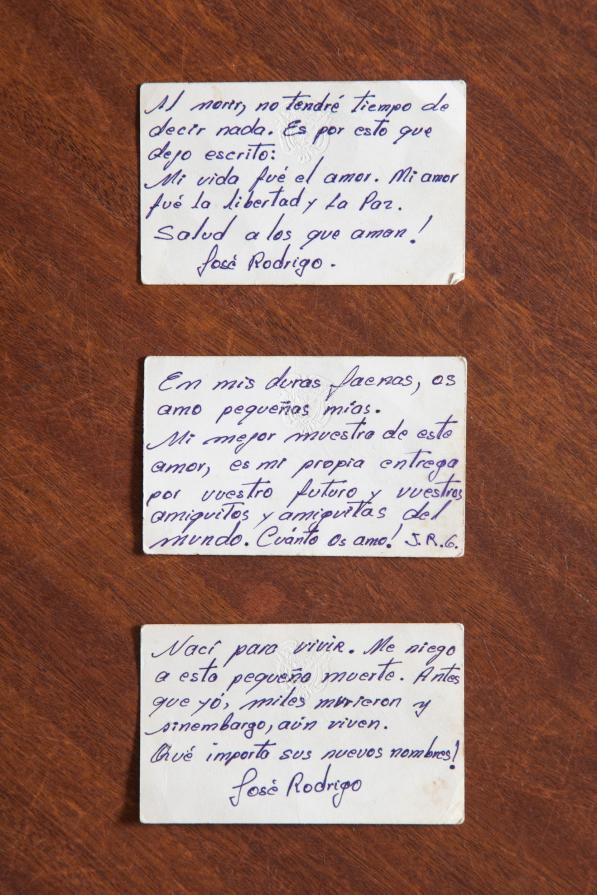 Al morir, no tendré tiempo de
decir nada. Es por esto que
dejo escrito:
Mi vida fué el amor. Mi amor
fué la libertad y La Paz.
Salud a los que aman!
José Rodrigo.
En mis duras faenas, os
amo pequeñas mías.
Mi mejor muestra de este
amor, es mi propia entrega
por vuestro futuro y vuestros
amiguitos y amiguitas del
mundo. Cuánto os amo! J.R.G.
Nací para vivir. Me niego
a esta pequeña muerte. Antes
que yó, miles murieron y
sinembargo, aún viven.
Qué importa sus nuevos nombres!
José Rodrigo